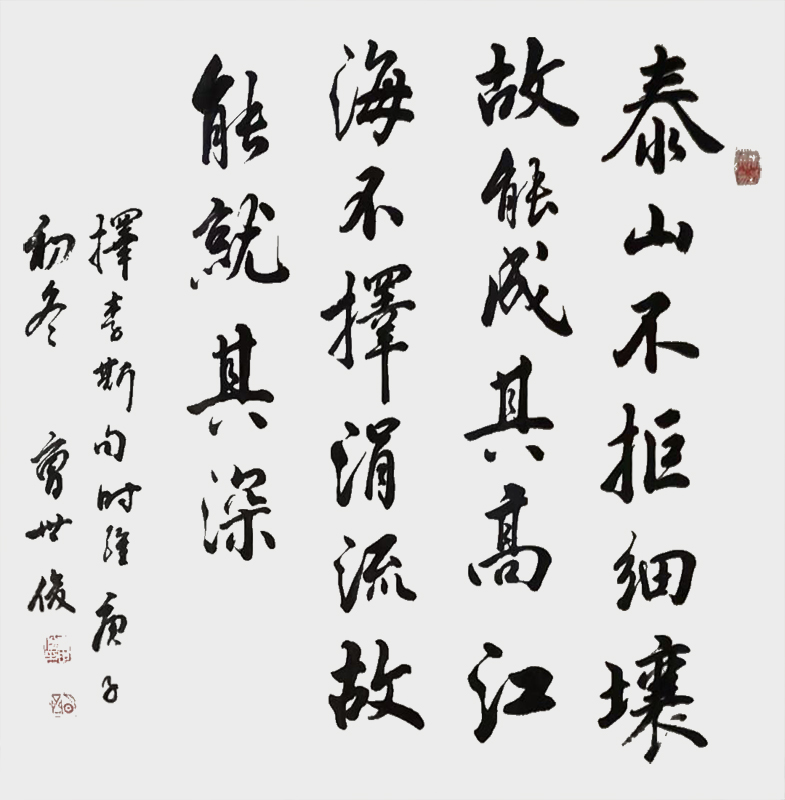 泰山不拒细壤
故能成其高江
海不擇涓流故
能就其深
擇李斯句时维庚子
初冬 曹世俊